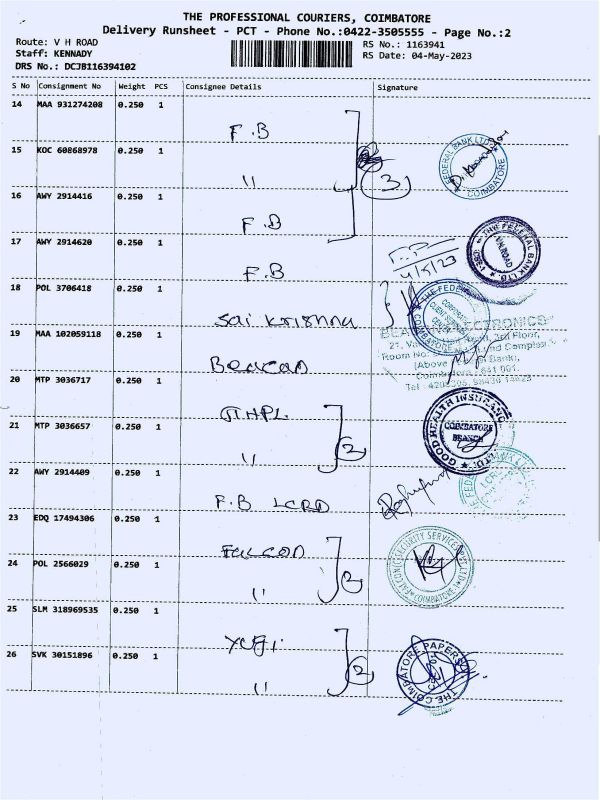 THE PROFESSIONAL COURIERS, COIMBATORE
Delivery Runsheet - PCT - Phone No.:0422-3505555 - Page No.:2
Route: V H ROAD
RS No.: 1163941
Staff: KENNADY
RS Date: 04-May-2023
DRS No.: DCJB116394102
S No Consignment No Weight PCS Consignee Details Signature
14 MAA 931274208 0.250 1 F.B
15 KOC 60868978 0.250 1 "
3
FEDERAL BANK LTD. COIMBATORE
16 AWY 2914416 0.250 1 F.B
17 AWY 2914620 0.250 1 F.B
4/5/23
THE FEDERAL BANK LTD.
18 POL 3706418 0.250 1 Sai Krishna
THE FEDERAL
COIMBATORE
19 MAA 102059118 0.250 1 Beacon
ELECTRONICS
3rd Floor,
Room No:
(Above Bank),
Coimbatore 641 001.
20 MTP 3036717 0.250 1
21 MTP 3036657 0.250 1 "
2
GOOD HEALTH INSURANCE LTD.
COIMBATORE
BRANCH
22 AWY 2914409 0.250 1 F.B LCRD
23 EDQ 17494306 0.250 1 Falcon
24 POL 2566029 0.250 1 "
2
FALCON SECURITY SERVICES COIMBATORE
25 SLM 318969535 0.250 1 Yugi
26 SVK 30151896 0.250 1 "
2
THE COIMBATORE PAPERS